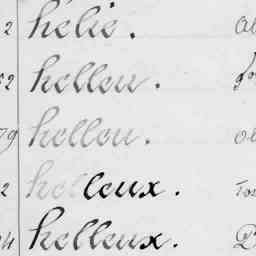 2 helie.
2 hellen.
79 hellou.
2 helleux.
4 helleux.